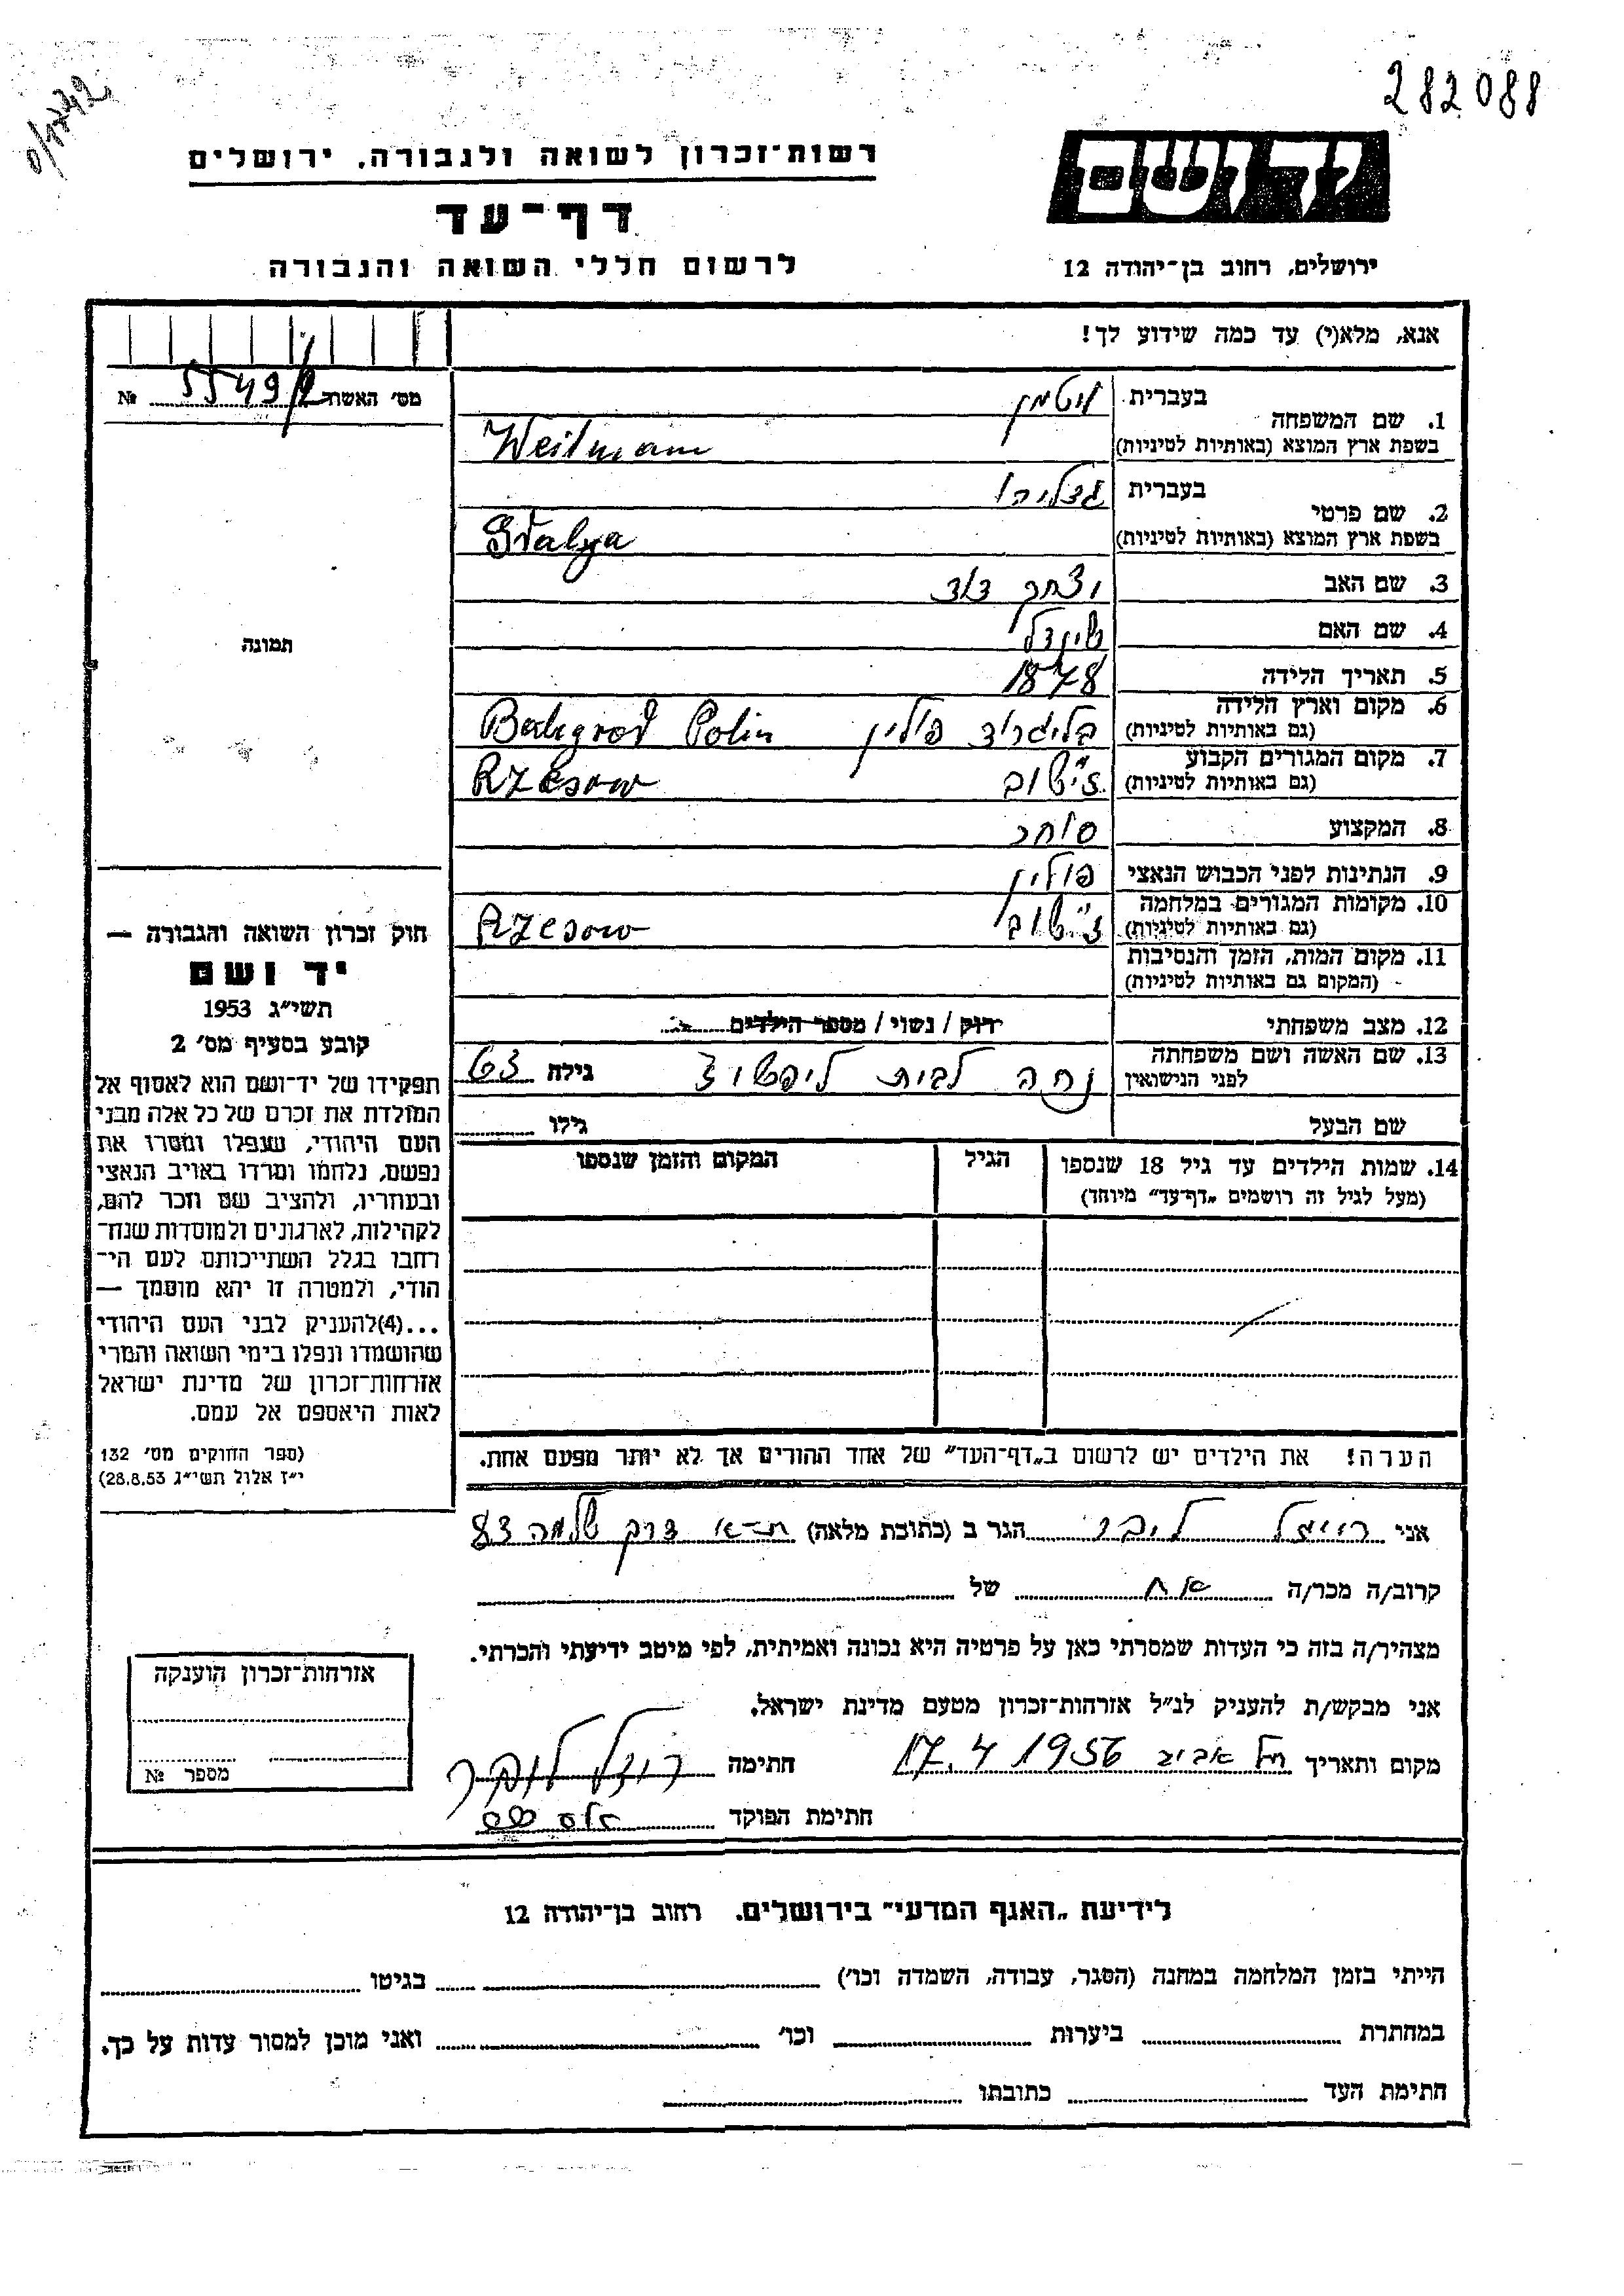 282088
רשות־זכרון לשואה ולגבורה, ירושלים
יד ושם
דף־עד
לרשום חללי השואה והגבורה
ירושלים, רחוב בן־יהודה 12
אנא, מלא(י) עד כמה שידוע לך!
מס׳ האשה № 5549/
1. שם המשפחה בעברית ויטמן
בשפת ארץ המוצא (באותיות לטיניות) Weitmann
2. שם פרטי בעברית גדליהו
בשפת ארץ המוצא (באותיות לטיניות)
3. שם האב יצחק דוד
4. שם האם שינדל
5. תאריך הלידה 1878
6. מקום וארץ הלידה בליגרוד פולין Polin
(גם באותיות לטיניות)
7. מקום המגורים הקבוע Rzesow
(גם באותיות לטיניות)
8. המקצוע סוחר
9. הנתינות לפני הכבוש הנאצי פולין
10. מקומות המגורים במלחמה Rzesow
(גם באותיות לטיניות)
11. מקום המות, הזמן והנסיבות
(המקום גם באותיות לטיניות)
12. מצב משפחתי רוק / נשוי / מספר הילדים
13. שם האשה ושם משפחתה לבית ליפשיץ גילה 63
לפני הנישואין
שם הבעל גילו
14. שמות הילדים עד גיל 18 שנספו הגיל המקום והזמן שנספו
(מעל לגיל זה רושמים „דף־עד״ מיוחד)
הערה! את הילדים יש לרשום ב„דף־העד״ של אחד ההורים אך לא יותר מפעם אחת.
תמונה
חוק זכרון השואה והגבורה —
יד ושם
תשי״ג 1953
קובע בסעיף מס׳ 2
תפקידו של יד־ושם הוא לאסוף אל
המולדת את זכרם של כל אלה מבני
העם היהודי, שנפלו ומסרו את
נפשם, נלחמו ומרדו באויב הנאצי
ובעוזריו, ולהציב שם וזכר להם,
לקהילות, לארגונים ולמוסדות שנח־
רבו בגלל השתייכותם לעם הי־
הודי, ולמטרה זו יהא מוסמך —
...(4)להעניק לבני העם היהודי
שהושמדו ונפלו בימי השואה והמרי
אזרחות־זכרון של מדינת ישראל
לאות היאספם אל עמם.
(ספר החוקים מס׳ 132
י״ז אלול תשי״ג 28.8.53)
אני הגר ב (כתובת מלאה) ת־א דרך שלמה 83
קרוב/ה מכר/ה של
מצהיר/ה בזה כי העדות שמסרתי כאן על פרטיה היא נכונה ואמיתית, לפי מיטב ידיעתי והכרתי.
אני מבקש/ת להעניק לנ״ל אזרחות־זכרון מטעם מדינת ישראל.
מקום ותאריך תל אביב 17.4 1956 חתימה
חתימת הפוקד
אזרחות־זכרון הוענקה
מספר №
לידיעת „האגף המדעי״ בירושלים. רחוב בן־יהודה 12
הייתי בזמן המלחמה במחנה (הסגר, עבודה, השמדה וכו׳) בגיטו
במחתרת ביערות וכו׳ ואני מוכן למסור עדות על כך.
חתימת העד כתובתו